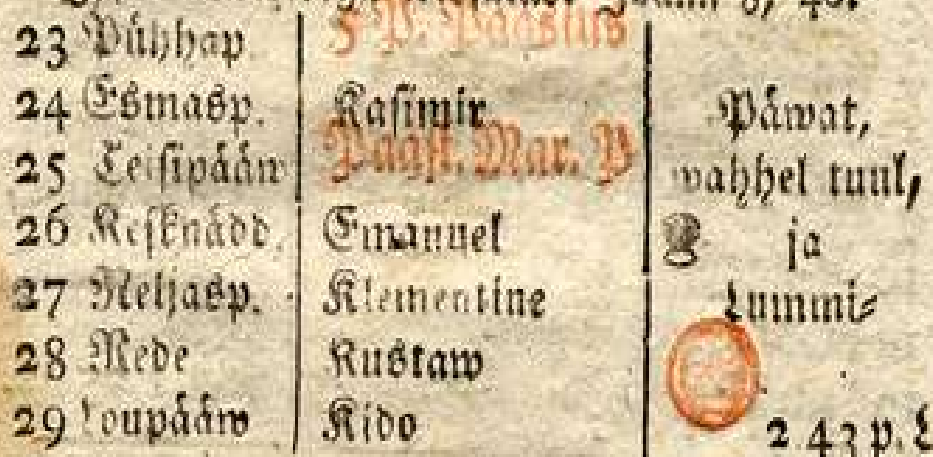 23 Pühhap. 5 P. Paastus
24 Esmasp. Kasimir Päwat,
25 Teisipääw Paast. Mar. P wahhel tuul,
26 Kesknädd. Emanuel ja
27 Neljasp. Klementine Lummi⸗
28 Rede Kustaw
29 Loupääw Kido 2 43 p. L